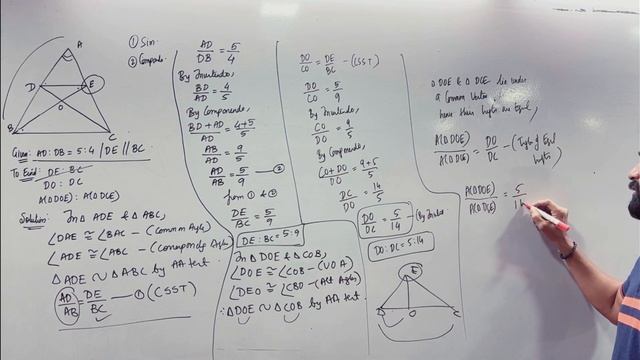 ① Sim
② Componendo
A
D
E
O
B
C
Given: AD:DB = 5:4 / DE // BC
To Find: DE:BC
DO:DC
A(△DOE):A(△DCE)
Solution: In △ADE & △ABC,
∠DAE ≅ ∠BAC - (Common Angle)
∠ADE ≅ ∠ABC
△ADE ~ △ABC by AA test
AD/AB = DE/BC — ① (CSST)
AD/DB = 5/4
By Invertendo,
BD/AD = 4/5
By Componendo,
BD+AD/AD = 4+5/5
AB/AD = 9/5
AD/AB = 5/9 — ②
from ① & ②
DE/BC = 5/9
DE:BC = 5:9
In △DOE & △COB,
∠DOE ≅ ∠COB - (VOA)
∠DEO ≅ ∠CBO - (Alt Angle)
∴ △DOE ~ △COB by AA test
DO/CO = DE/BC - (CSST)
DO/CO = 5/9
By Invertendo,
CO/DO = 9/5
By Componendo,
CO+DO/DO = 9+5/5
DC/DO = 14/5
DO/DC = 5/14
DO:DC = 5:14
E
D
O
C
△DOE & △DCE lie under
a Common Vertex
hence their heights are Equal,
A(△DOE)/A(△DCE) = DO/DC
A(△DOE)/A(△DCE) = 5/1